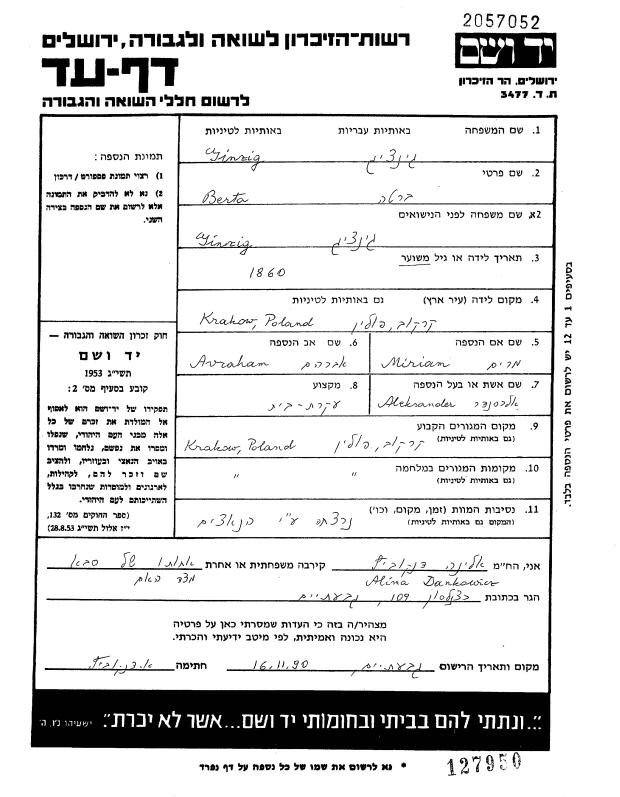 2057052
רשות-הזיכרון לשואה ולגבורה, ירושלים
יד ושם
דף-עד
ירושלים, הר הזיכרון
ת. ד. 3477
לרשום חללי השואה והגבורה
תמונת הנספה:
1) רצוי תמונת פספורט / דרכון
2) נא לא להדביק את התמונה
אלא לרשום את שם הנספה בצידה
השני.
1. שם המשפחה באותיות עבריות באותיות לטיניות
גינציג Ginzig
2. שם פרטי
ברטה Berta
2א. שם משפחה לפני הנישואים
גינציג Ginzig
3. תאריך לידה או גיל משוער
1860
4. מקום לידה (עיר ארץ) גם באותיות לטיניות
קרקוב, פולין Krakow, Poland
5. שם אם הנספה 6. שם אב הנספה
מרים Miriam אברהם Avraham
7. שם אשת או בעל הנספה 8. מקצוע
אלכסנדר Aleksander עקרת-בית
9. מקום המגורים הקבוע
(גם באותיות לטיניות)
קרקוב, פולין Krakow, Poland
10. מקומות המגורים במלחמה
(גם באותיות לטיניות)
" "
11. נסיבות המוות (זמן, מקום, וכו')
(המקום גם באותיות לטיניות)
נרצחה ע"י הנאצים
חוק זכרון השואה והגבורה —
יד ושם
תשי"ג 1953
קובע בסעיף מס' 2:
תפקידו של יד-ושם הוא לאסוף
אל המולדת את זכרם של כל
אלה מבני העם היהודי, שנפלו
ומסרו את נפשם, נלחמו ומרדו
באויב הנאצי ובעוזריו, ולהציב
שם וזכר להם, לקהילות,
לארגונים ולמוסדות שנחרבו בגלל
השתייכותם לעם היהודי.
(ספר החוקים מס' 132,
י"ז אלול תשי"ג 28.8.53)
בסעיפים 1 עד 12 יש לרשום את פרטי הנספה בלבד.
אני, הח"מ אלינה דנקוביץ קירבה משפחתית או אחרת אחותו של סבא
Alina Dankowicz מצד האם
הגר בכתובת כצנלסון 109, גבעתיים
מצהיר/ה בזה כי העדות שמסרתי כאן על פרטיה
היא נכונה ואמיתית, לפי מיטב ידיעתי והכרתי.
מקום ותאריך הרישום גבעתיים 16.11.90 חתימה א. דנקוביץ
"...ונתתי להם בביתי ובחומותי יד ושם...אשר לא יכרת". ישעיהו נ"ו, ה'
* נא לרשום את שמו של כל נספה על דף נפרד
127950